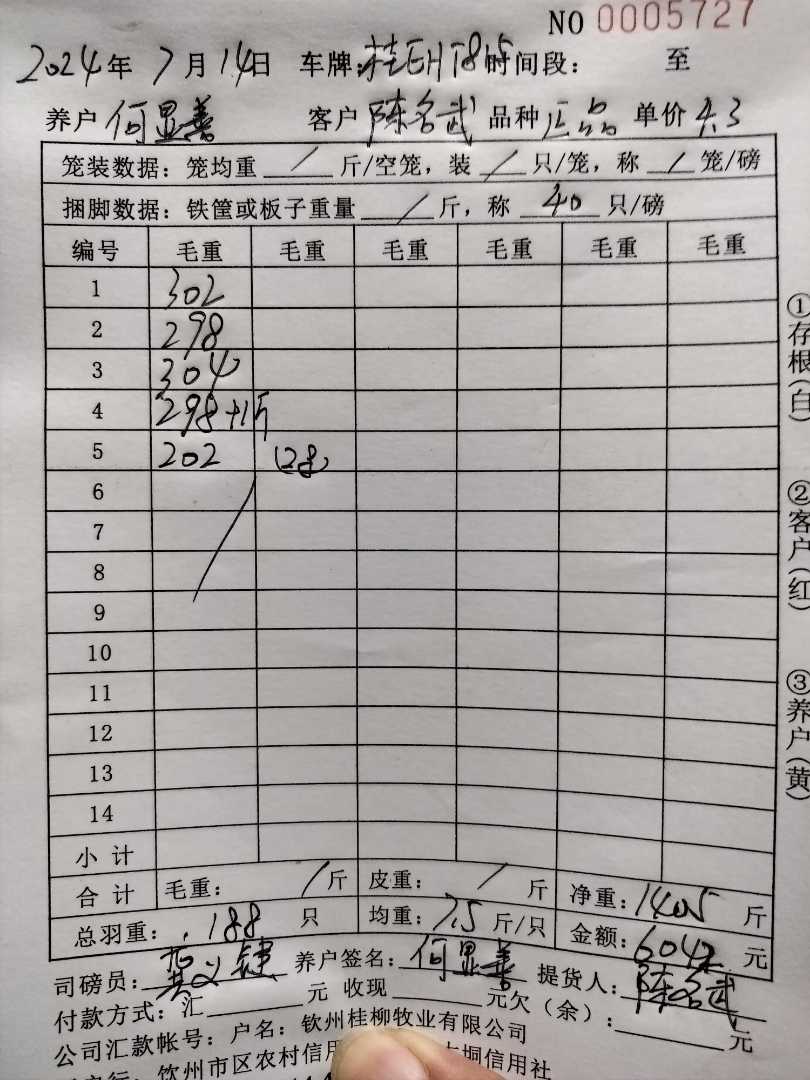 NO 0005727
2024年 7月14日 车牌:桂EHT815时间段: 至
养户 何显善 客户 陈名武 品种 正品 单价 4.3
笼装数据: 笼均重 / 斤/空笼, 装 / 只/笼, 称 / 笼/磅
捆脚数据: 铁筐或板子重量 / 斤, 称 40 只/磅
编号 毛重 毛重 毛重 毛重 毛重 毛重
1 302
2 298
3 304
4 298+1斤
5 202
6
7
8
9
10
11
12
13
14
小计
合计 毛重: / 斤 皮重: / 斤 净重: 1405 斤
总羽重: 188 只 均重: 7.5 斤/只 金额: 6042 元
司磅员: 养户签名: 何显善 提货人: 陈名武
付款方式: 汇 元 收现 元欠(余): 元
公司汇款帐号: 户名: 钦州桂柳牧业有限公司
钦州市区农村信用 垌信用社
①存根(白)
②客户(红)
③养户(黄)